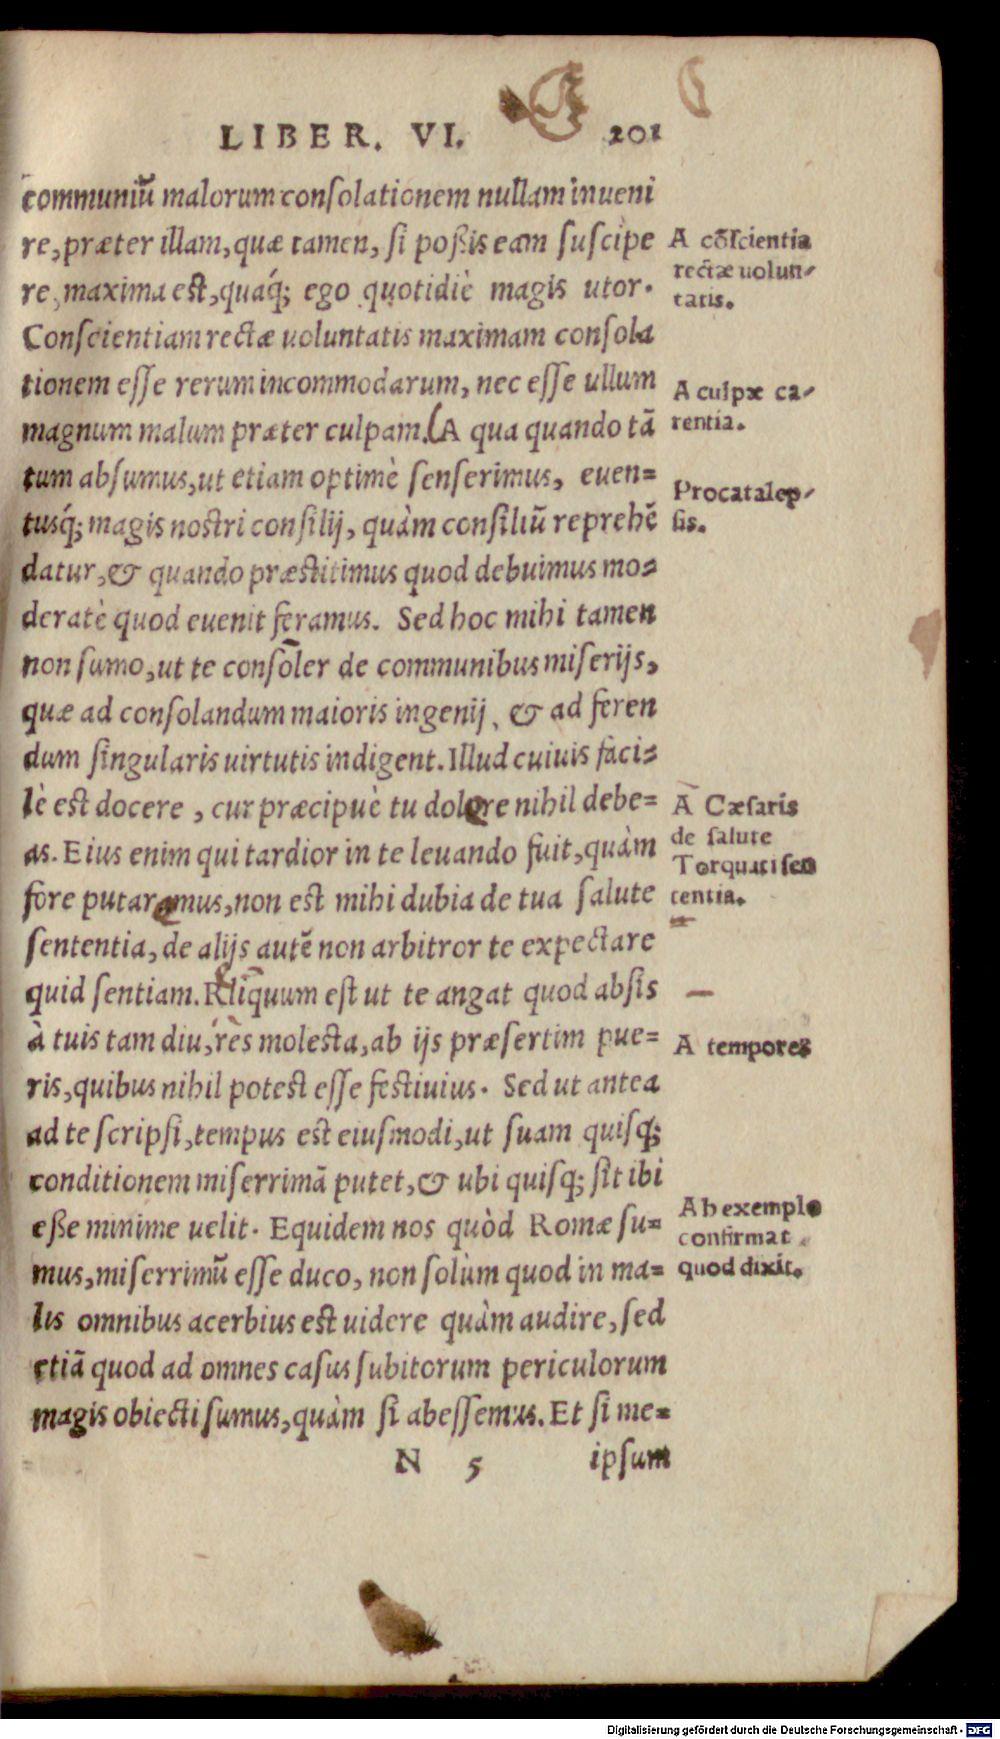 LIBER. VI. 201
communiũ malorum consolationem nullam inueni
re, præter illam, quæ tamen, si poßis eam suscipe
re, maxima est, quaq́; ego quotidiè magis utor.
Conscientiam rectæ uoluntatis maximam consola
tionem esse rerum incommodarum, nec esse ullum
magnum malum præter culpam. (A qua quando tã
tum absumus, ut etiam optimè senserimus, euen=
tusq́; magis nostri consilij, quàm consiliũ reprehẽ
datur, & quando præstitimus quod debuimus mo=
deratè quod euenit feramus. Sed hoc mihi tamen
non sumo, ut te consoler de communibus miserijs,
quæ ad consolandum maioris ingenij, & ad feren
dum singularis uirtutis indigent. Illud cuiuis faci=
lè est docere, cur præcipuè tu dolore nihil debe=
as. Eius enim qui tardior in te leuando fuit, quàm
fore putaramus, non est mihi dubia de tua salute
sententia, de alijs autẽ non arbitror te expectare
quid sentiam. Rliquum est ut te angat quod absis
à tuis tam diu, rẽs molesta, ab ijs præsertim pue=
ris, quibus nihil potest esse festiuius. Sed ut antea
ad te scripsi, tempus est eiusmodi, ut suam quisq;
conditionem miserrimã putet, & ubi quisq; sit ibi
eße minime uelit. Equidem nos quòd Romæ su=
mus, miserrimũ esse duco, non solùm quod in ma=
lis omnibus acerbius est uidere quàm audire, sed
etiã quod ad omnes casus subitorum periculorum
magis obiecti sumus, quàm si abessemus. Et si me=
N 5 ipsum
A cõscientia
rectæ uolun-
tatis.
A culpæ ca-
rentia.
Procatalep-
sis.
A Cæsaris
de salute
Torquati sen
tentia.
A tempores
Ab exemplo
confirmat
quod dixit.
Digitalisierung gefördert durch die Deutsche Forschungsgemeinschaft - DFG